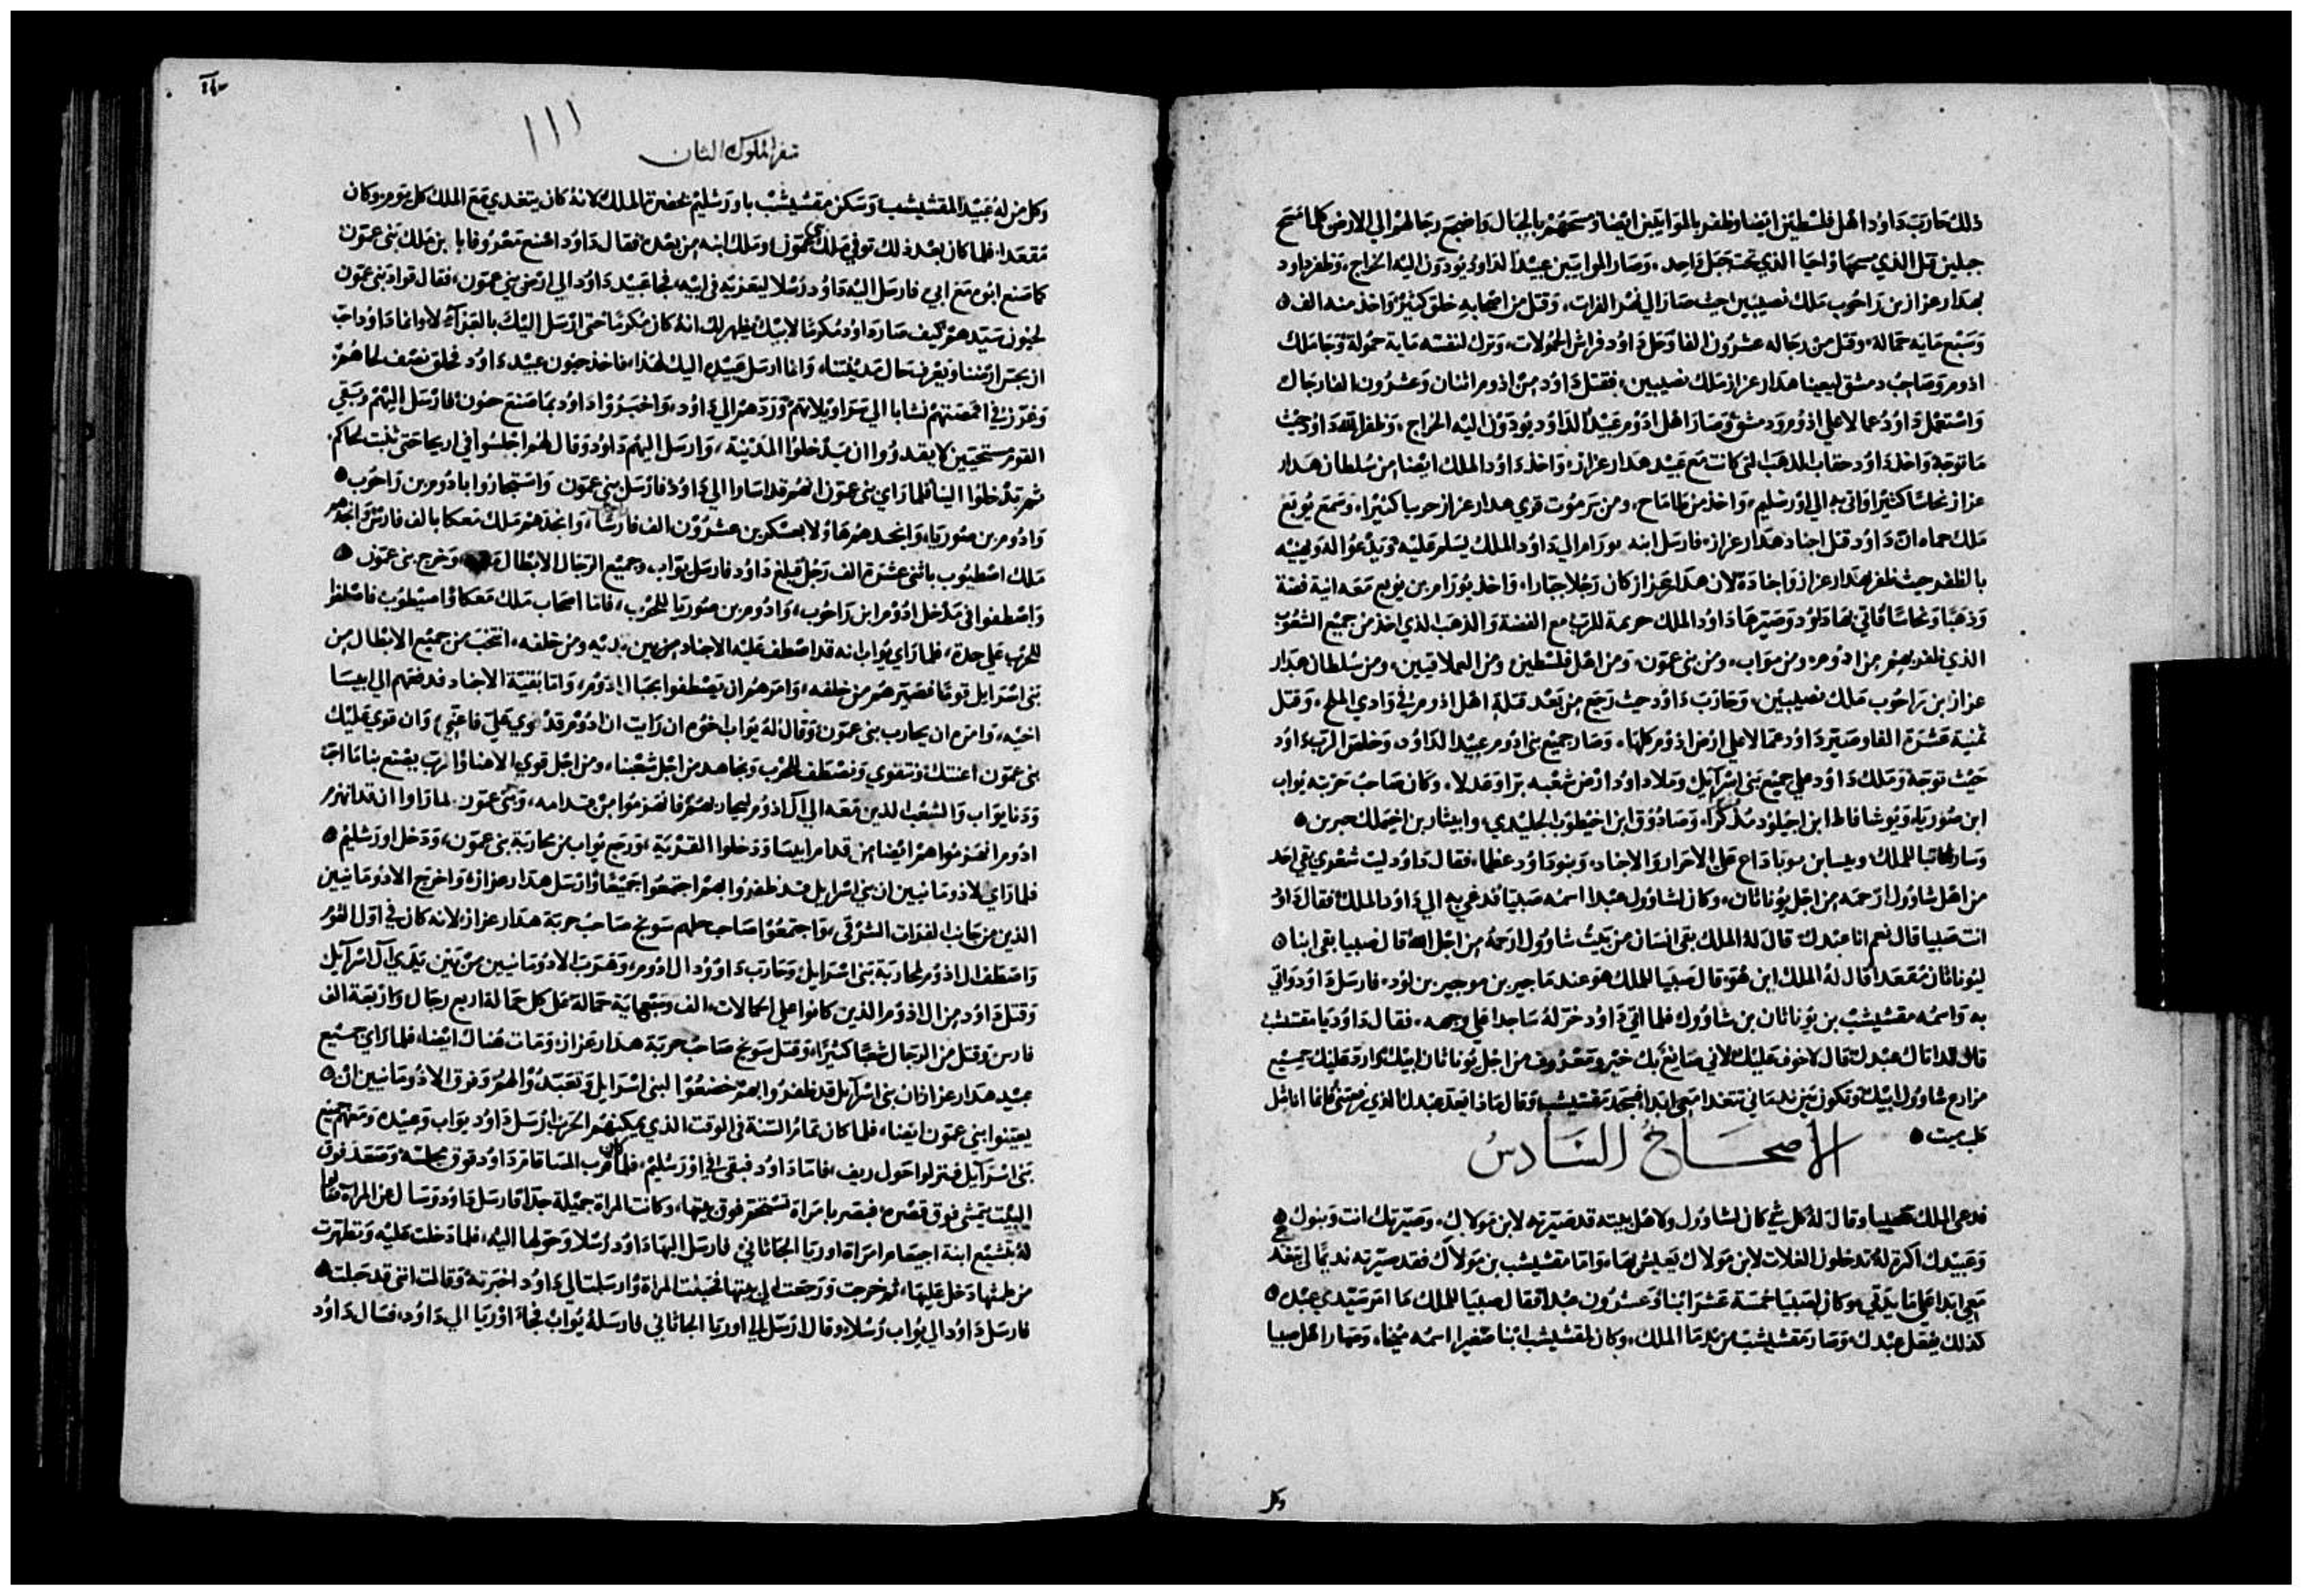 ذلك حارب داود اهل فلسطين ايضا وظفر بالموابيين ايضا ومسحهم بالحبال واضجع رجالهم الي الارض كلما مسح
حبلين قتل الذي مسحها واحيا الذي تحت حبل واحد وصار الموابيين عبيدا لداود يودون اليه الخراج وظفر داود
بهدار عزاز بن راحوب ملك نصيبين حيث صار الي نهر الفرات وقتل من اصحابه خلق كثير واخذ منه الف
وسبع مايه حمالة وقتل من رجاله عشرون الفا وحل داود فراش الحمولات وترك لنفسه ماية حمولة وجا ملك
ادوم وصاحب دمشق ليعينا هدار عزاز ملك نصيبين فقتل داود من ادوم اثنان وعشرون الفا رجال
واستعمل داود عمالا علي ادوم ودمشق وصار اهل ادوم عبيدا لداود يودون اليه الخراج وظفر الله داود حيث
ما توجه واخذ داود حقاب الذهب التي كانت مع عبيد هدار عزاز واخذ داود الملك ايضا من سلطان هدار
عزاز نحاسا كثيرا واتي به الي اورشليم واخذ من طاماح ومن برموت قري هدار عزاز حربا كثيرا وسمع يوبع
ملك حماه ان داود قتل اجناد هدار عزاز فارسل ابنه يورام الي داود الملك يسلم عليه ويدعوا له ويهنيه
بالظفر حيث ظفر بهدار عزاز واجناده لان هدار عزاز كان رجلا جبارا واخذ يورام بن يوبع معه انية فضة
وذهبا ونحاسا فاتي بها داود وصيرها داود الملك حريمة للرب مع الفضة والذهب الذي اخذ من جميع الشعوب
الذي ظفر بهم من ادوم ومن مواب ومن بني عمون ومن اهل فلسطين ومن العملاقيين ومن سلطان هدار
عزاز بن راحوب ملك نصيبين وحارب داود حيث رجع من بعد قتلة اهل ادوم في وادي الملح وقتل
ثمنية عشرة الفا وصير داود عمالا علي ارض ادوم كلها وصار جميع بني ادوم عبيدا لداود وخلص الرب داود
حيث توجه وملك داود علي جميع بني اسرآيل وملا داود ارض شعبه برا وعدلا وكان صاحب حربته يواب
ابن صوريا ويوشافاط ابن اخيلود مذكرا وصادوق ابن اخيطوب الجليدي وابيثار بن اخيملك حبرين
وسار كاتبا للملك وبنيا بن يوباداع علي الاحرار والاجناد وبنو داود عظما فقال داود ليت شعري بقي احد
من اهل شاوول ارحمه من اجل يوناثان وكان لشاوول عبدا اسمه صيبا فدعي به الي داود الملك فقال داود
انت صيبا قال نعم انا عبدك قال له الملك بقي انسان من بيت شاوول ارحمه من اجل الله قال صيبا بقي ابنا
ليوناثان مقعدا قال له الملك اين هو قال صيبا للملك هو عند ماجير بن موجير بن لود فارسل داود واتي
به واسمه مفشيشب بن يوناثان بن شاوول فلما اتي داود خر له ساجدا علي وجهه فقال داود يا مفشيشب
قال له انا ك عبدك قال لا خوف عليك لاني صانع بك خير ومعروف من اجل يوناثان ابيك واردد عليك جميع
مزارع شاوول ابيك وتكون من ندماني تتغدا معي ابدا فسجد مفشيشب وقال ماذا يعد عبدك الذي رفعتني فانما انا مثل
كلب ميت
الاصحاح السادس
فدعي الملك صيبا وقال له كل شي كان لشاوول ولاهل بيته قد صيرته لابن مولاك وصيرتك انت وبنوك
وعبيدك اكرة له تدخلون الغلات لابن مولاك يعيش بها واما مفشيشب بن مولاك فقد صيرته نديما لي يتغدا
معي ابدا علي مايدتي وكان لصيبا خمسة عشر ابنا وعشرون عبدا فقال صيبا للملك كما امر سيدي عبده
كذلك يفعل عبدك وصار مفشيشب من ندما الملك وكان لمفشيشب ابنا صغيرا اسمه ميخا وصار اهل صيبا
وكل
١١١
سفر الملوك الثان
وكل من له عبيدا لمفشيشب وسكن مفشيشب باورشليم بحضرة الملك لانه كان يتغدي مع الملك كل يوم وكان
مقعدا فلما كان بعد ذلك توفي ملك بني عمون وملك ابنه من بعده فقال داود اصنع معروفا بابن ملك بني عمون
كما صنع ابوه مع ابي فارسل اليه داود رسلا ليعزيه في ابيه فجا عبيد داود الي ارض بني عمون فقال قواد بني عمون
لحنون سيدهم كيف صار داود مكرما لابيك يظهر لك انه كان مكرما حتي ارسل اليك بالعزآ لا وانما داود احب
ان يجس ارضنا ويعرف حال مدينتنا وانما ارسل عبيده اليك لهذا فاخذ حنون عبيد داود فحلق نصف لحاهم
القوم مستحيين لا يقدروا ان يدخلوا المدينة وارسل اليهم داود وقال لهم اجلسوا في اريحا حتي تنبت لحاكم
ثم تدخلوا الينا فلما راي بني عمون انهم قد اساوا الي داود فارسل بني عمون واستجاروا بادوم بن راحوب
وادوم بن صوريا وانجدهم هاولا بعسكرين عشرون الف فارسا وانجدهم ملك معكا بالف فارس وانجدهم
ملك اصطيوب باثني عشرة الف رجل فبلغ داود فارسل يواب وجميع الرجال الابطال وخرج بني عمون
واصطفوا في مدخل ادوم ابن راحوب وادوم بن صوريا للحرب فاما اصحاب ملك معكا واصيطوب فاصطفوا
للحرب علي حدة فلما راي يواب انه قد اصطف عليه الاجناد من بين يديه ومن خلفه انتخب من جميع الابطال من
بني اسرايل قوما فصيرهم من خلفه وامرهم ان يصطفوا بحبال ادوم واما بقية الاجناد فدفعهم الي ابيسا
اخيه وامره ان يحارب بني عمون وقال له يواب اخوه ان رايت ان ادوم قد قوي علي فاعني وان قوي عليك
بني عمون اعنتك ونتقوي ونصطف للحرب ونجاهد من اجل شعبنا ومن اجل قري الاهنا والرب يصنع بنا ما احب
ودنا يواب والشعب الذين معه الي آل ادوم ليحاربهم فانهزموا من قدامه وبني عمون لما راوا ان قد انهزم
ادوم انهزموا هم ايضا من قدام ابيسا ودخلوا القرية ورجع يواب من محاربة بني عمون ودخل اورشليم
فلما راي الادومانيين ان بني اسرايل قد ظفروا بهم اجتمعوا جميعا وارسل هدار عزاز واخرج الادومانيين
الذين من جانب الفرات الشرقي واجتمعوا صاحب حلهم سوبح صاحب حربة هدار عزاز لانه كان في اول القوم
واصطف ال ادوم لمحاربة بني اسرايل وحارب داوود ال ادوم وهرب الادومانيين من بين يدي آل اسرآيل
وقتل داود من ال ادوم الذين كانوا علي الحمالات الف وسبعماية حمالة علي كل حمالة اربع رجال واربعة الف
فارس وقتل من الرجال شعبا كثيرا وقتل سوبح صاحب حربة هدار عزاز ومات هناك ايضا فلما راي جميع
عبيد هدار عزاز ان بني اسرآيل قد ظفروا بهم خضعوا لبني اسرايل وتعبدوا لهم وفرق الادومانيين ان
يعينوا بني عمون ايضا فلما كان تمام السنة في الوقت الذي يمكنهم الحرب ارسل داود يواب وعبيده ومعهم جميع
بني اسرآيل فنزلوا حول ريف فاما داود فبقي في اورشليم فلما كان قرب المسا قام داود فوق مجلسه وصعد فوق
البيت يتمشي فوق قصره فبصر بامراة تستحم فوق بيتها وكانت المراة جميلة جدا فارسل داود وسال عن المراة فقالوا
له بتشبع ابنة اجيعام امراة اوريا الجاثاني فارسل اليها داود رسلا وحولها اليه فلما دخلت عليه وتطهرت
من طمثها دخل عليها ثم خرجت ورجعت الي بيتها فحبلت المراة وارسلت الي داود اخبرته وقالت انني قد حبلت
فارسل داود الي يواب رسلا وقال ارسل الي اوريا الجاثاني فارسله يواب فجا اوريا الي داود فسال داود